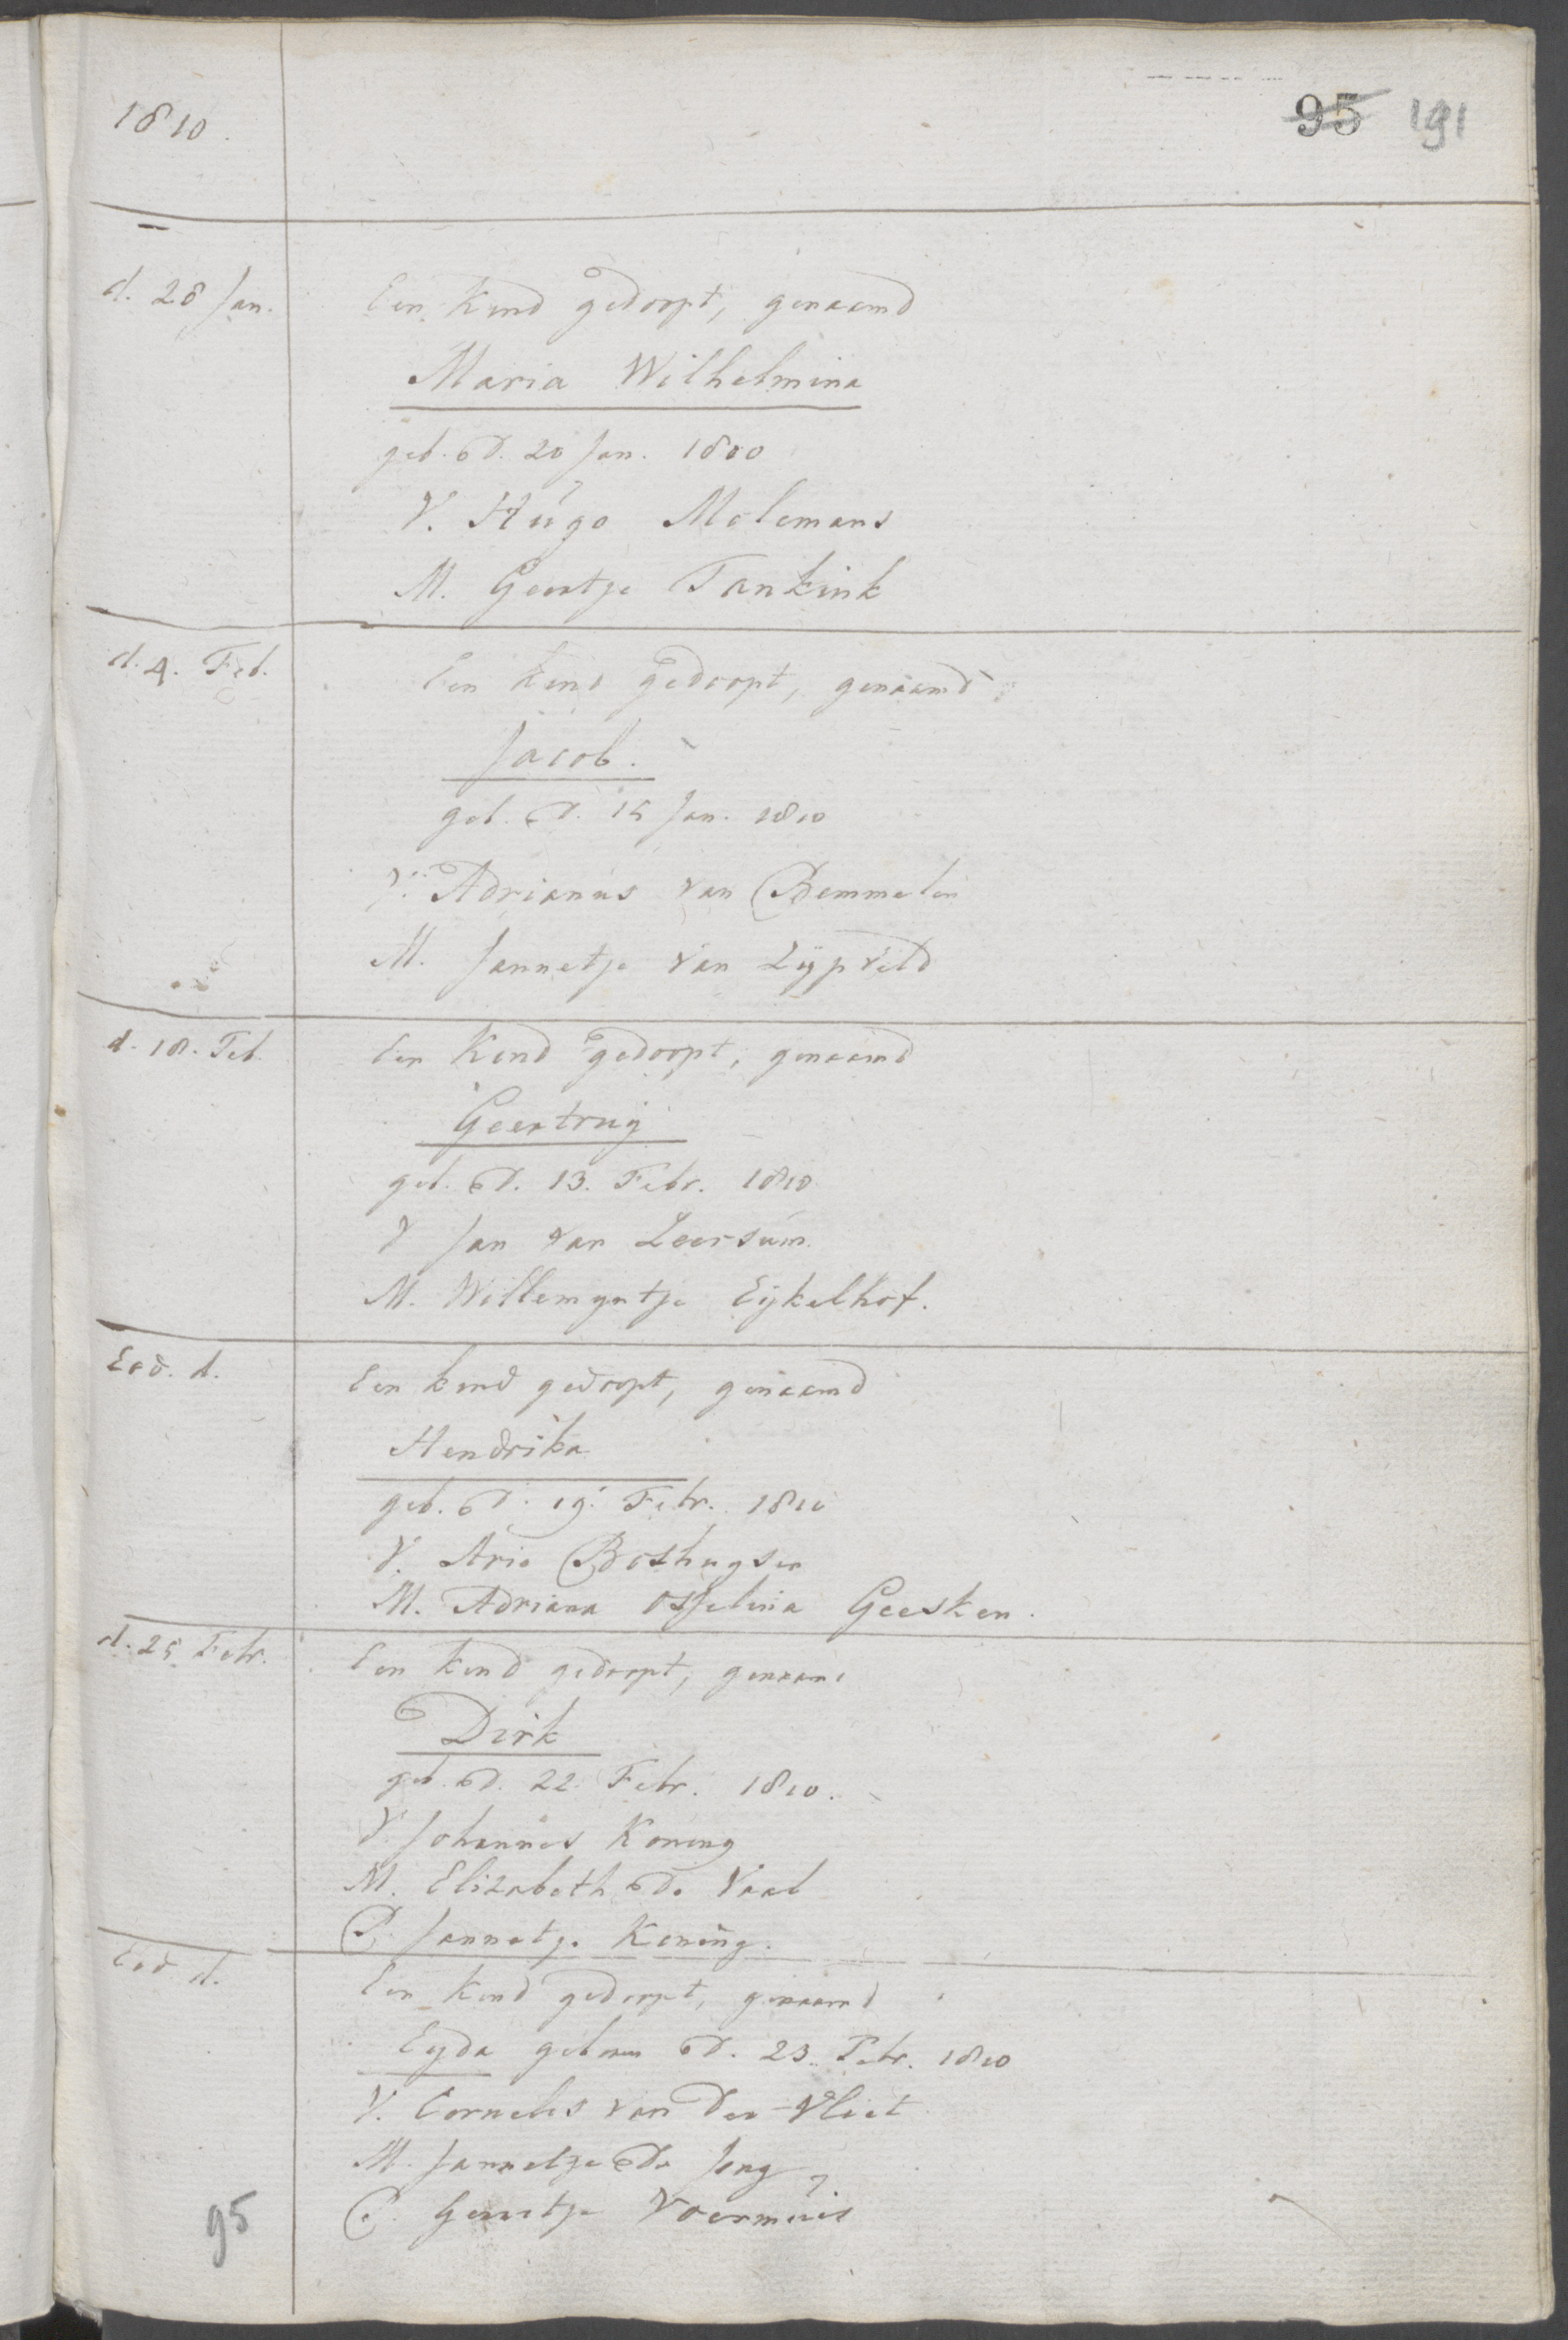 1810.
95 191
d. 28 Jan.
Een Kind gedoopt, genaamd
Maria Wilhelmina
geb. d. 20 Jan. 1800
V. Hugo Molemans
M. Geertje Tankink
d. 4. Feb.
Een kind gedoopt, genaamd
Jacob.
geb. d. 15 Jan. 1810
V. Adrianus van Bemmelen
M. Jannetje van Lijpveld
d. 18. Feb.
Een Kind gedoopt, genaamd
Geertruij
geb. d. 13. Febr. 1810
V Jan van Leersum.
M. Willemyntje Eijkelhof.
Eod. d.
Een kind gedoopt, genaamd
Hendrika
geb. d. 19. Febr. 1810
V. Arie Boshuyser
M. Adriana Osselina Geesken.
d. 25 Febr.
Een kind gedoopt, genaamd
Dirk
geb. d. 22. Febr. 1810.
V. Johannes Koning
M. Elizabeth de Vaal
P. Jannetje Koning.
Eod d.
Een kind gedoopt, genaamd
Eyda geboren d. 23. Febr. 1810
V. Cornelis van der Vliet
M. Jannetje de Jong
P. Gerritje Voermuis
95